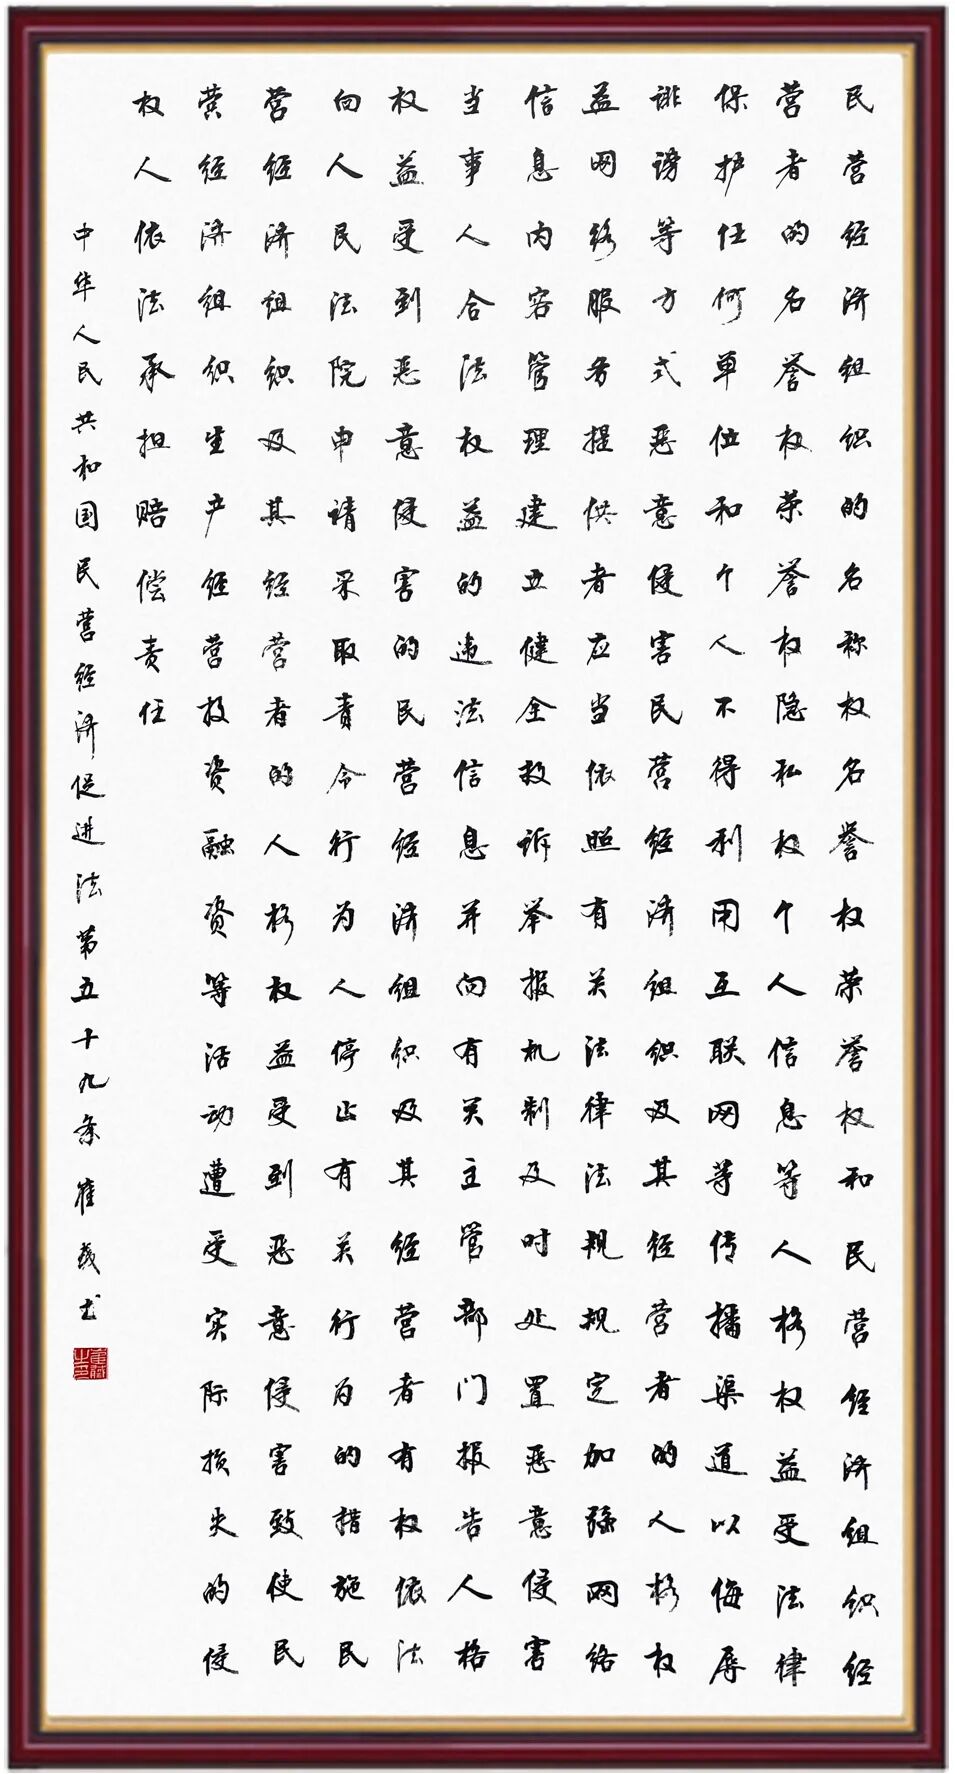 民营经济组织的名称权名誉权荣誉权和民营经济组织经
营者的名誉权荣誉权隐私权个人信息等人格权益受法律
保护任何单位和个人不得利用互联网等传播渠道以侮辱
诽谤等方式恶意侵害民营经济组织及其经营者的人格权
益网络服务提供者应当依照有关法律法规规定加强网络
信息内容管理建立健全投诉举报机制及时处置恶意侵害
当事人合法权益的违法信息并向有关主管部门报告人格
权益受到恶意侵害的民营经济组织及其经营者有权依法
向人民法院申请采取责令行为人停止有关行为的措施民
营经济组织及其经营者的人格权益受到恶意侵害致使民
营经济组织生产经营投资融资等活动遭受实际损失的侵
权人依法承担赔偿责任
中华人民共和国民营经济促进法第五十九条 崔 书